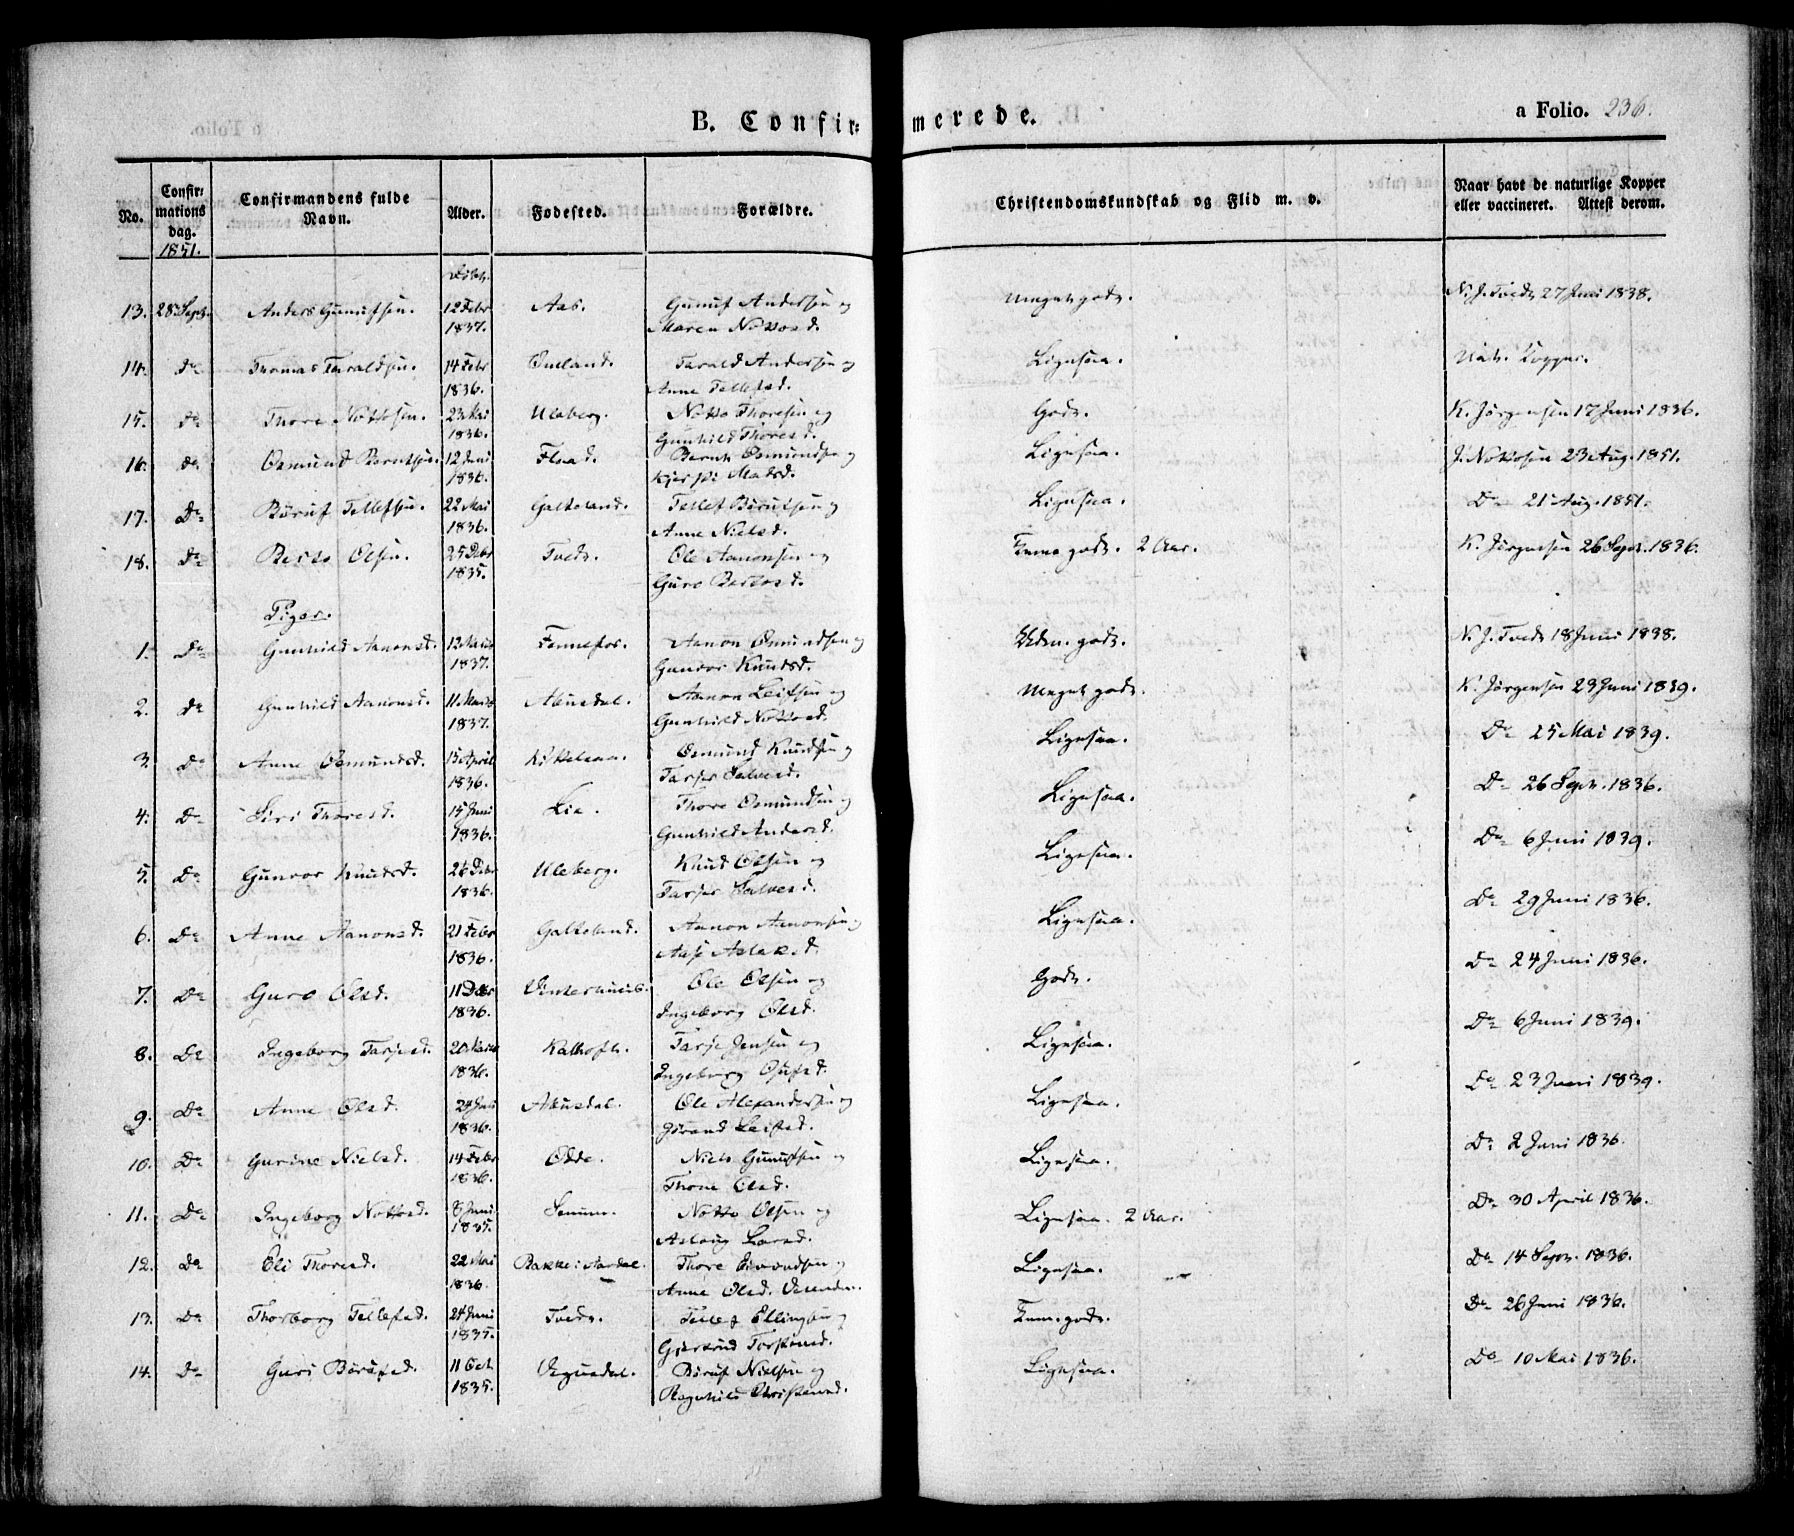 B. Confir- merede.
a Folio. 236.
No. Confir- mations dag. Confirmandens fulde Navn. Alder. Fødested. Forældre. Christendomskundskab og Flid m. v. Naar havt de naturlige Kopper eller vaccineret. Attest derom.
1851.
13. 28 Sept. Anders Gunufsen. 12 Febr Aas. Gunuf Andersen og Meget godt. N. J. Tvedt 27 Juni 1838.
1837. Maren Nottosd.
14. Do Thomas Taraldsen. 14 Febr Øuland. Tarald Andersen og Ligesaa. Nat. Kopper.
1836. Anne Tellefsd.
15. Do Thore Nottosen. 23 Mai Uleberg. Notto Thoresen og Godt. K. Jørgensen 17 Juni 1836.
1836. Gunhild Thoresd.
16. Do Osmund Berntsen. 12 Juni Flaad. Bernt Osmundsen og Ligesaa. J. Nottosen 23 Aug. 1851.
1836. Kjersti Matsd.
17. Do Børuf Tellefsen. 22 Mai Galteland. Tellef Børufsen og Ligesaa. Do 21 Aug. 1851.
1836. Anne Nielsd.
18. Do Berto Olsen. 25 Tvedt. Ole Aanonsen og Temm. godt. 2 Aar. K. Jørgensen 26 Sept. 1836.
1835. Guro Bertosd.
Piger.
1. Do Gunhild Aanonsd. 12 Marts Fennefos. Aanon Osmundsen og godt. N. J. Tvedt 18 Juni 1838.
1837. Gunvor Knudsd.
2. Do Gunhild Aanonsd. 11 Marts Abusdal. Aanon Leifsen og Meget godt. K. Jørgensen 23 Juni 1839.
1837. Gunhild Nottosd.
3. Do Anne Osmundsd. 15 April Kittelsaa. Osmund Knudsen og Ligesaa. Do 25 Mai 1839.
1836. Tarjer Salvesd.
4. Do Siri Thoresd. 15 Juni Lie. Thore Osmundsen og Ligesaa. Do 26 Sept. 1836.
1836. Gunhild Andersd.
5. Do Gunvor Knudsd. 26 Uleberg. Knud Olsen og Ligesaa. Do 6 Juni 1839.
1836. Tarjer Salvesd.
6. Do Anne Aanonsd. 21 Febr Galteland. Aanon Aanonsen og Ligesaa. Do 29 Juni 1836.
1836. Aase Aslaksd.
7. Do Guro Olsd. 11 Vinterhuus. Ole Olsen og Godt. Do 24 Juni 1836.
1836. Ingeborg Olsd.
8. Do Ingeborg Tarjesd. 20 Marts Kalhoft. Tarje Jensen og Ligesaa. Do 6 Juni 1839.
1836. Ingeborg
9. Do Anne Olsd. 24 Juli Abusdal. Ole Alexandersen og Ligesaa. Do 23 Juni 1839.
1836. Jørand Leifsd.
10. Do Gurine Nielsd. 14 Febr Odde. Niels Gunufsen og Ligesaa. Do 2 Juni 1836.
1836. Thone Olsd.
11. Do Ingeborg Nottosd. 8 Juni Senum. Notto Olsen og Ligesaa. 2 Aar. Do 30 April 1836.
1835. Aslaug Larsd.
12. Do Eli Thoresd. 22 Mai Bakke i Aardal. Thore og Ligesaa. Do 14 Sept. 1836.
1836. Anne Olsd.
13. Do Thorborg Tellefsd. 24 Juni Tvedt. Tellef Ellingsen og Temm. godt. Do 26 Juni 1836.
1835. Gjertrud Torstensd.
14. Do Guri Børufsd. 11 Oct. Vegusdal. Børuf Nielsen og Ligesaa. Do 10 Mai 1836.
1835. Ragnhild Christensd.